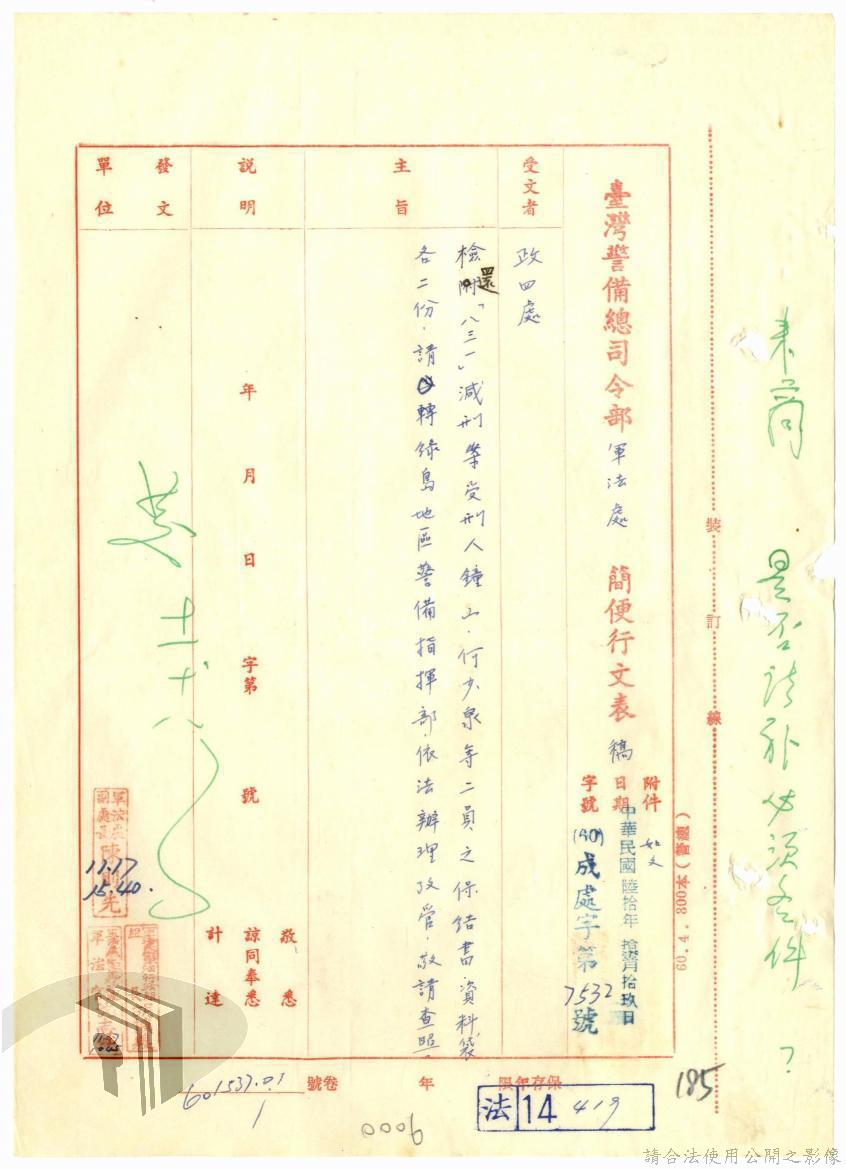 是否請補
件?
裝訂線
60.4.800本(普通)
臺灣警備總司令部 軍法處 簡便行文表 稿
附件 如文
日期 中華民國陸拾年 拾壹月拾玖日
字號 (60)成處字第7532號
受文者 政四處
主旨
檢附還「八三一」減刑案受刑人鐘山.何少泉等二員之保結書.資料袋
各二份.請轉綠島地區警備指揮部.依法辦理改管.敬請查照。
說明
年 月 日 字第 號
敬悉
諒同奉悉
計達
發文單位
十八
軍法處副處長陳
11.17
15.40.
軍法
保存年限 年 卷號 601537.01
1
法14 419
9000
185
請合法使用公開之影像